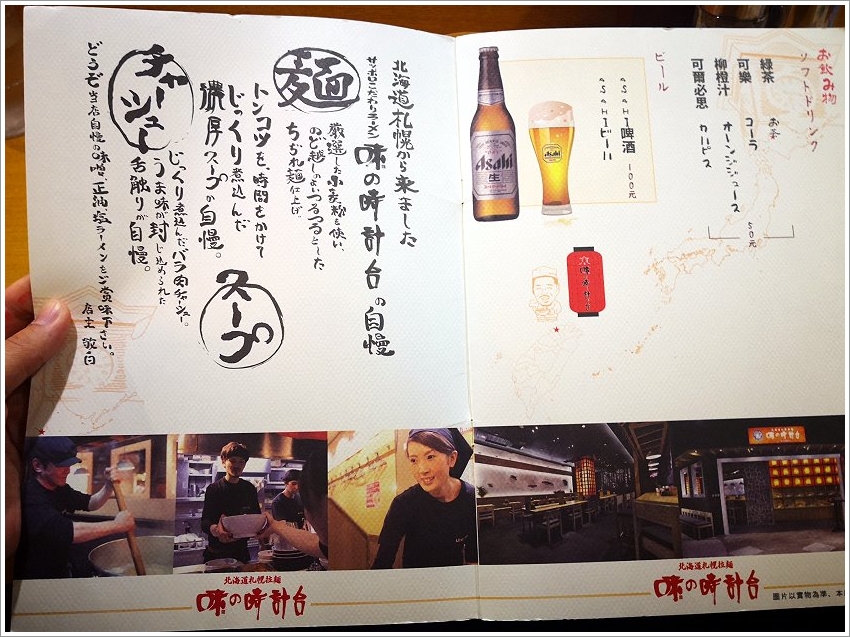 お飲み物
ソフトドリンク
緑茶 お茶
可樂 コーラ
柳橙汁 オーンジジュース
可爾必思 カルピス
50元
ビール
ASAHI啤酒 100元
ASAHIビール
Asahi
生
Asahi
味の時計台
北海道札幌から来ました
味の時計台の自慢
麺
サッポロこだわりラーメン
厳選した小麦粉を使い、
のど越しのよいつるつるとした
ちぢれ麺仕上げ
トンコツを、時間をかけて
じっくり煮込んだ
濃厚スープが自慢。
スープ
チャーシュー
じっくり煮込んだバラ肉チャーシュー。
うま味が封じ込められた
舌触りが自慢。
どうぞ当店自慢の味噌、正油、塩ラーメンをご賞味下さい。
店主 敬白
味の時計台
北海道札幌拉麺
味の時計台
北海道札幌拉麺
味の時計台
圖片以實物為準、本